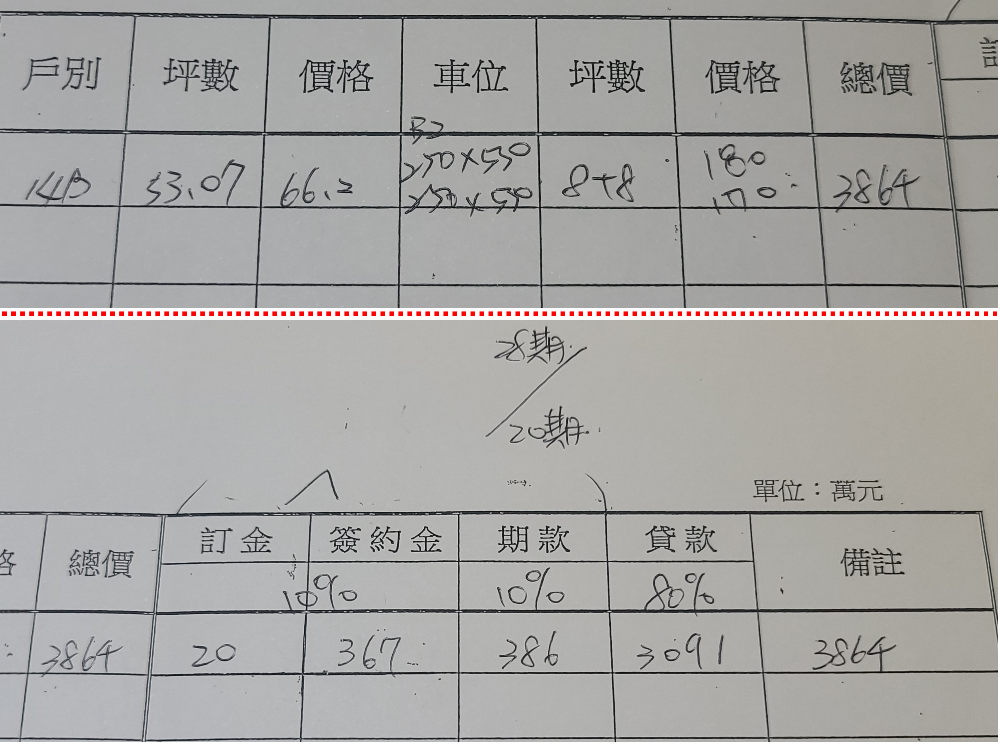 戶別 坪數 價格 車位 坪數 價格 總價 訂
B2
14B 53.07 66.2 250×550 8+8 180 3864
250×550 170
28期
20期
單位：萬元
格 總價 訂金 簽約金 期款 貸款 備註
10% 10% 80%
3864 20 367 386 3091 3864